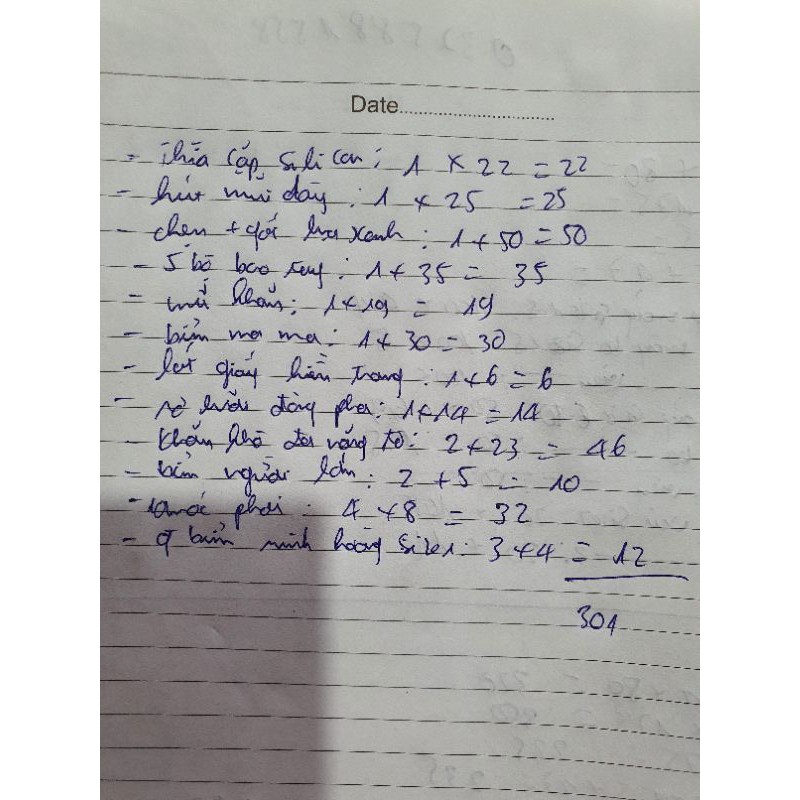 Date
- thìa cắp silicon: 1 x 22 = 22
- hút mũi dây: 1 x 25 = 25
- chen + gối lưa xanh: 1 x 50 = 50
- 5 bộ bao : 1 x 35 = 35
- khăn: 1 x 19 = 19
- bỉm ma ma: 1 x 30 = 30
- lót giấy hiền trang: 1 x 6 = 6
- lưới phơi: 1 x 14 = 14
- khăn khô đa năng to: 2 x 23 = 46
- bỉm người lớn: 2 x 5 = 10
- móc phơi: 4 x 8 = 32
- q bỉm minh hoàng size1: 3 x 4 = 12
301